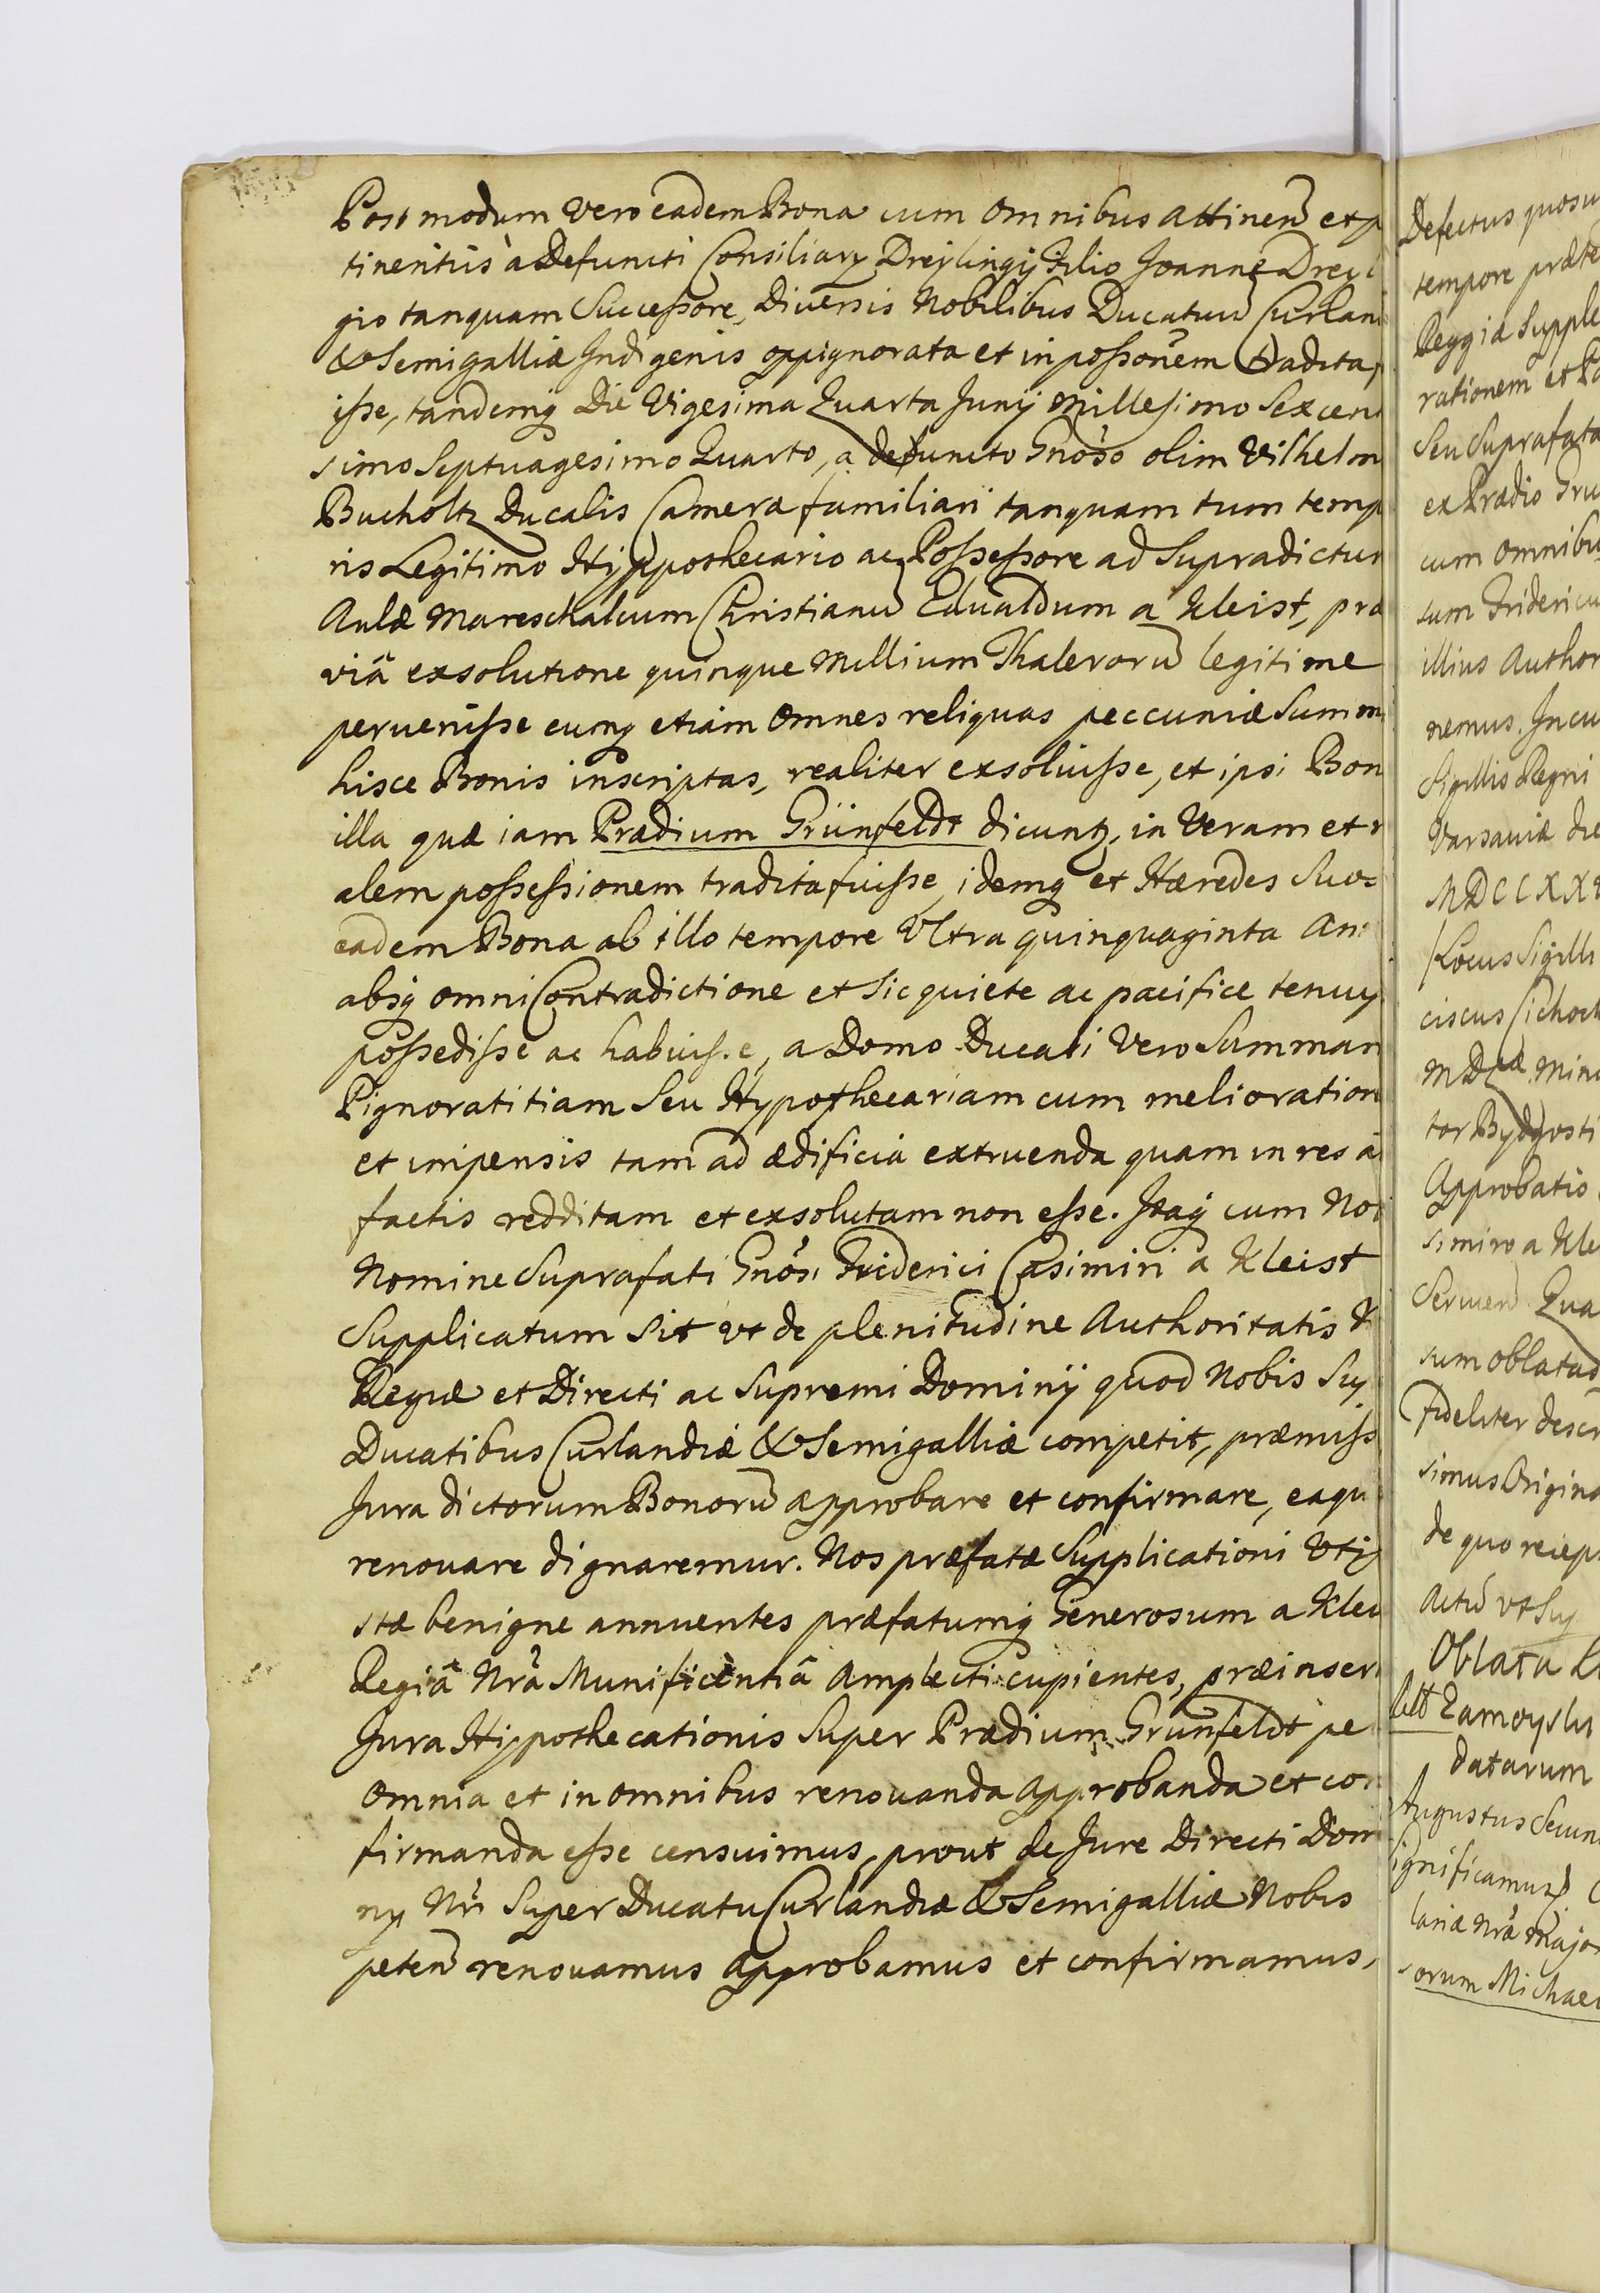 Post modum Vero eadem Bona cum Omnibus Attinen et p
tinentiis à Defuncti Consiliarÿ Dreÿlingÿ Filio Joanne Dreÿl
gio tanquam Successore, Diversis Nobilibus Ducatuu Curlan
& Semigalliæ Indigenis oppignorata et in possonem tradita f
isse, tandemq Die Vigesima Quarta Junÿ Millesimo Sexcen
simo Septuagesimo Quarto, a defuncto Gnoso olim Vilhelm
Bucholtz Ducalis Cameræ familiari tanquam tum temp
ris Legitimo Hyppothecario ac Possessore ad Supradictum
Aulæ Mareschalcum Christianu Edualdum a Kleist, præ
viâ exsolutione quinque Millium Thaleroru legitime
pervenisse eumq etiam Omnes reliquas peccuniæ Summ
hisce Bonis inscriptas, realiter exsoluisse, et ipsi Bon
illa quæ iam Prædium Grünfeldt dicuntz, in Veram et r
alem possessionem tradita fuisse, idemq et Hæredes Suos
eadem Bona ab illo tempore Ultra quinquaginta An
absq omni Contradictione et Sic quiete ac pacifice tenuy
possedisse ac habuisse, a Domo Ducali Vero Summam
Pignoratitiam Seu Hypothecariam cum melioration
et impensis tam ad ædificia extruenda quam in res a
factis redditam et exsolutam non esse. Itaq cum Nob
Nomine Suprafati Gnosi Friderici Casimiri a Kleist
Supplicatum Sit ut de plenitudine Authoritatis
Regiæ et Directi ac Supremi Dominÿ quod Nobis Sup
Ducatibus Curlandiæ & Semigalliæ competit, præmiss
Jura dictorum Bonoru approbare et confirmare, eaqu
renouare dignaremur. Nos præfatæ Supplicationi Uti
stæ benigne annuentes præfatumq Generosum a Klei
Regiâ Nrâ Munificentiâ Amplecti cupientes, præinser
Jura Hypothecationis Super Prædium Grünfeldt pe
Omnia et in omnibus renouanda approbanda et con
firmanda esse censuimus, prout de Jure Directi Dom
nÿ Nri Super Ducatu Curlandiæ & Semigalliæ Nobis
peten renouamus approbamus et confirmamus,
Defectus quosu
tempore præte
Reggiæ Supple
rationem et Ro
Seu Suprafata
ex Prædio Grü
cum Omnibu
sum Fridericu
illius Author
nemus. In cu
Sigillis Regni
Varsaviæ die
MDCCXX
(Locus Sigilli
ciscus Cichock
MDCæ Mino
tor Bydgosti
Approbatio
simiro a Kle
Seruien Qua
sum oblatad
fideliter descr
simus Origina
de quo recep
Actu ut Sup
Oblata
Zamoyski
datarum
Augustus Secun
Significamus
lariæ Nrâ Majo
sorum Michael